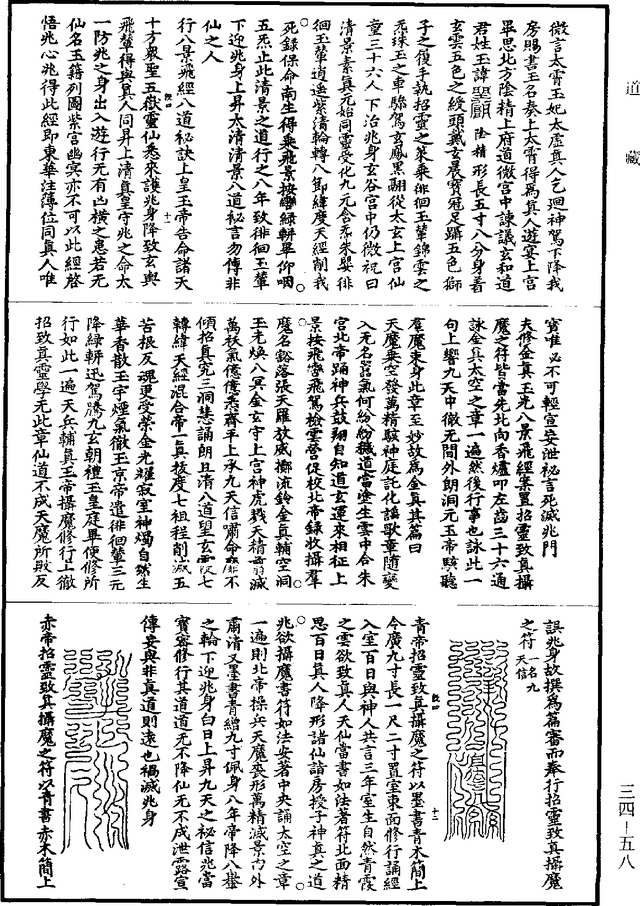 道藏
微言太霄玉妃太虛真人乞迴神駕下降我
房賜書玉名奏上太霄得為真人遊宴上宮
畢思北方陰精上府道微宮中諫議玄和道
君姓玉諱 陰精形長五寸八分身著
玄雲五色之綬頭戴玄晨寶冠足躡五色獅
子之履手執招靈之策乘徘徊玉輦錦雲之
炁珠玉之車驂駕玄鳳黑翮從太玄上宮仙
童三十六人下治兆身玄谷宮中仍微祝曰
清景素真元始同靈受化九元含炁朱嬰徘
徊玉輦逍遙紫清輪轉八卿緯度天經削我
死錄保命南生得乘飛景按轡綠軿畢仰咽
五炁止此清景之道行之八年致徘徊玉輦
下迎兆身上昇太清清景八道秘言勿傳非
仙之人
行八景飛經八道秘訣上皇玉帝告命諸天
十方眾聖五嶽靈仙悉來護兆身降致玄輿
飛輦得與真人同昇上清真皇守兆之命太
一防兆之身出入遊行无有凶橫之患若无
仙名玉籍列圖紫宮幽冥亦不可以此經啓
悟兆心兆得此經即東華注簿位同真人唯
寶唯必不可輕宣妄泄秘言死滅兆門
夫修金真玉光八景飛經案置招靈致真攝
魔之符皆當先北向香爐叩左齒三十六通
詠金真太空之章一遍然後行事也詠此一
句上響九天中徹无間外朗洞元玉帝駭聽
羣魔束身此章至妙故為金真其篇曰
天魔乘空發萬精駭神庭託化謠歌章隨變
入无名 氣何紛紛穢道當塗生雲中合朱
宮北帝踊神兵鼓翔自知道玄運來相征上
景按飛宮飛駕檢雲營促校北帝錄收攝羣
魔名豁落張天羅放威擲流鈴金真輔空洞
玉光煥八冥金玄守上宮神虎戮天精 滅
萬妖氣億億悉齊平上承九天信嘯命靡不
傾招真究三洞慧誦朗且清八道望玄霞七
轉緯天經混合帝一真拔度七祖程削滅五
苦根反魂更受榮金光耀寂室神燭自然生
華香散玉宇煙氣徹玉京帝遣徘徊輦三元
降綠軿迅駕騰九玄朝禮玉皇庭畢便修所
行如此一遍天兵輔真玉帝攝魔修行上徹
招致真靈學无此章仙道不成天魔所毀反
誤兆身故撰為篇審而奉行招靈致真攝魔
之符一名九天信
青帝招靈致真攝魔之符以墨書青木簡上
令廣九寸長一尺二寸置室東面修行誦經
入室百日與神人共言三年室生自然青霞
之雲欲致真人天仙當書如法著符北面精
思百日真人降形諸仙詣房授子神真之道
兆欲攝魔書符如法安著中央誦太空之章
一遍則北帝操兵天魔喪形萬精滅景內外
肅清又墨書青繒九寸佩身八年帝降八鑾
之輪下迎兆身白日上昇九天之秘信兆當
寶密修行其道道无不降仙无不成泄露宣
傳妄與非真道則遠也禍滅兆身
赤帝招靈致真攝魔之符以青書赤木簡上
三四－五八